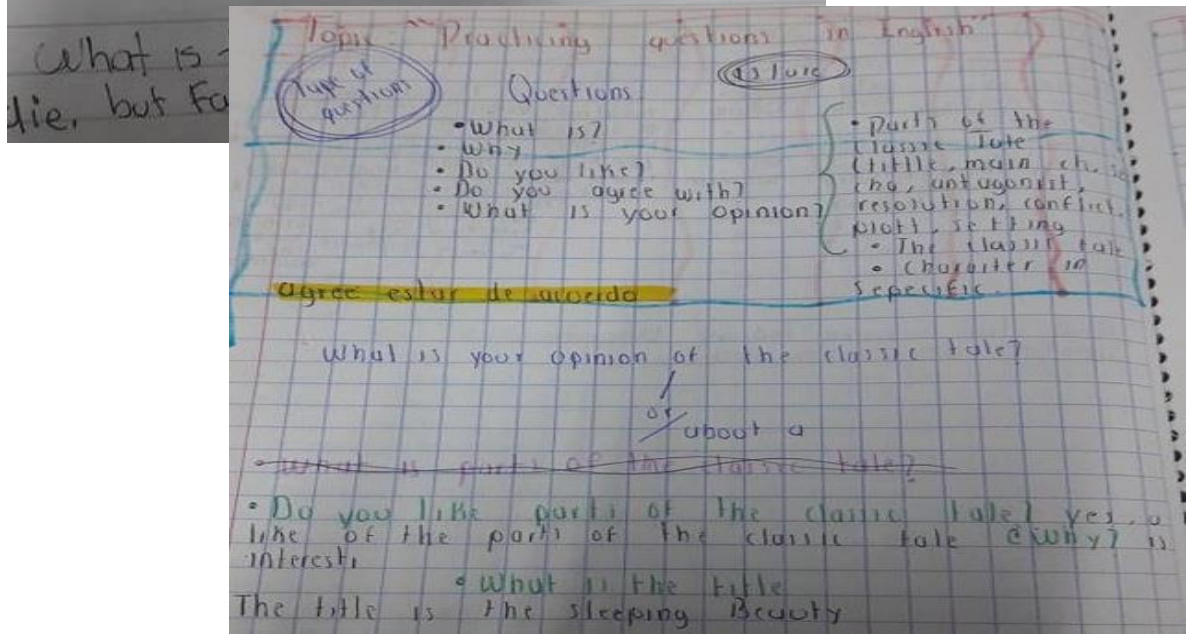 What is
die, but Fa
Topic "Practicing questions in English"
Type of question
Questions
• What is?
• Why
• Do you like?
• Do you agree with?
• What is your opinion?
• Parts of the
classic Tate
(tittle, main ch, se
cha, antagonist,
resolution, conflict,
plott, setting
• The classic tale
• Character in
sepecific.
agree estar de acuerdo
What is your opinion of the classic tale?
or
about a
• What is parts of the classic tale?
• Do you like parts of the classic tale? yes,
like of the parts of the classic tale ¿why? is
interesti
• What is the title
The title is the sleeping Beauty